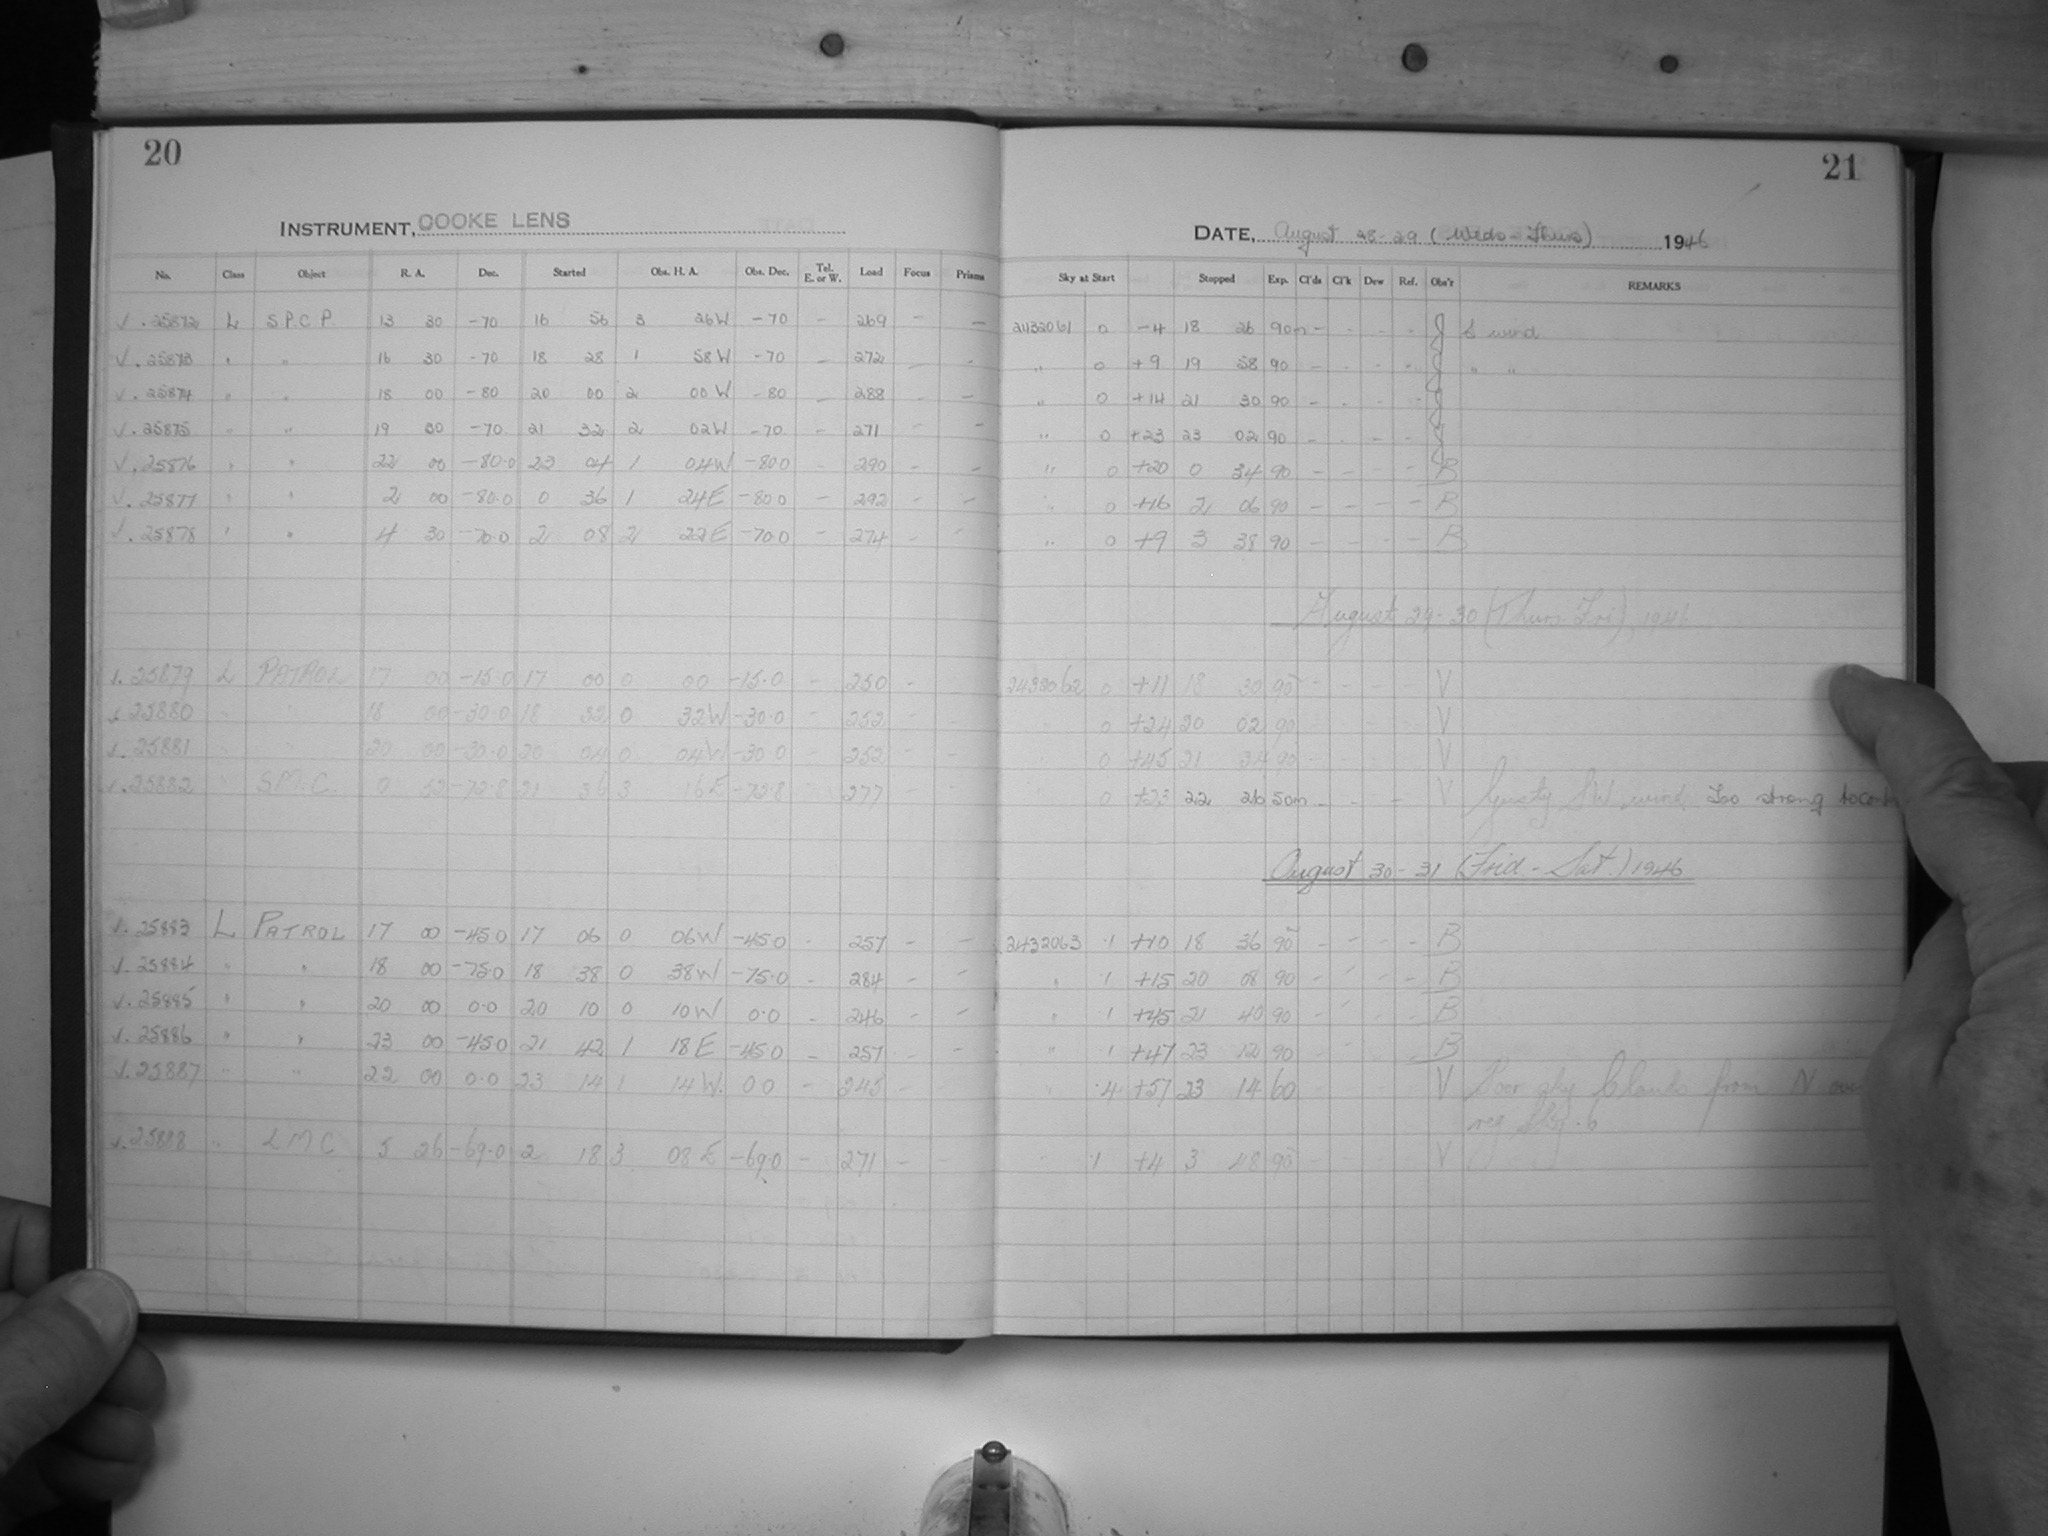 20
INSTRUMENT, COOKE LENS
No. Class Object R. A. Dec. Started Obs. H. A. Obs. Dec. Tel. E. or W. Load Focus Prisms
√ . 25872 L S.P.C.P. 13 30 -70 16 56 3 26W -70 - 269 - -
√ . 25873 " " 16 30 -70 18 28 1 58W -70 - 272 - -
√ . 25874 " " 18 00 -80 20 00 2 00W -80 - 288 - -
√ . 25875 " " 19 00 -70 21 32 2 02W -70 - 271 - -
√ . 25876 " " 22 00 -80.0 23 04 1 04W -80.0 - 290 - -
√ . 25877 " " 2 00 -80.0 0 36 1 24E -80.0 - 292 - -
√ . 25878 " " 4 30 -70.0 2 08 2 22E -70.0 - 274 - -
√. 25879 L PATROL 17 00 -15.0 17 00 0 00 -15.0 - 250 -
√. 25880 " " 18 00 -30.0 18 32 0 32W -30.0 - 252 - -
√. 25881 " " 20 00 -30.0 20 04 0 04W -30.0 - 252 - -
√. 25882 " S.M.C. 0 52 -72.8 21 36 3 16E -72.8 - 277 - -
√. 25883 L PATROL 17 00 -45.0 17 06 0 06W -45.0 - 257 - -
√. 25884 " " 18 00 -75.0 18 38 0 38W -75.0 - 284 - -
√. 25885 " " 20 00 0.0 20 10 0 10W 0.0 - 246 - -
√. 25886 " " 23 00 -45.0 21 42 1 18E -45.0 - 257 - -
√. 25887 " " 22 00 0.0 23 14 1 14W. 0.0 - 245 -
√. 25888 " LMC 5 26 -69.0 2 18 3 08E -69.0 - 271 - -
21
DATE, August 28-29 (Weds-Thurs) 1946
Sky at Start Stopped Exp. Cl'ds Cl'k Dew Ref. Obs'r REMARKS
2432061 0 -4 18 26 90m - - - - J S wind
" 0 +9 19 58 90 - - - - J " "
" 0 +14 21 30 90 - - - - J
" 0 +23 23 02 90 - - - - J
" 0 +20 0 34 90 - - - - B
" 0 +16 2 06 90 - - - - B
" 0 +9 3 38 90 - - - - B
August 29-30 (Thurs-Fri), 1946
2432062 0 +11 18 30 90 - - - - V
" 0 +24 20 02 90 - - - - V
" 0 +45 21 34 90 - - - - V
" 0 +23 22 26 50m - - - V Gusty SW wind. Too strong to
August 30-31 (Frid.-Sat.) 1946
2432063 .1 +10 18 36 90 - - - - B
" .1 +15 20 08 90 - - - - B
" .1 +45 21 40 90 - - - - B
" .1 +47 23 12 90 - - - - B
" .4 +51 23 14 60 - - - - V Poor sky Clouds from N
.6
.1 +4 3 48 90 - - - - V